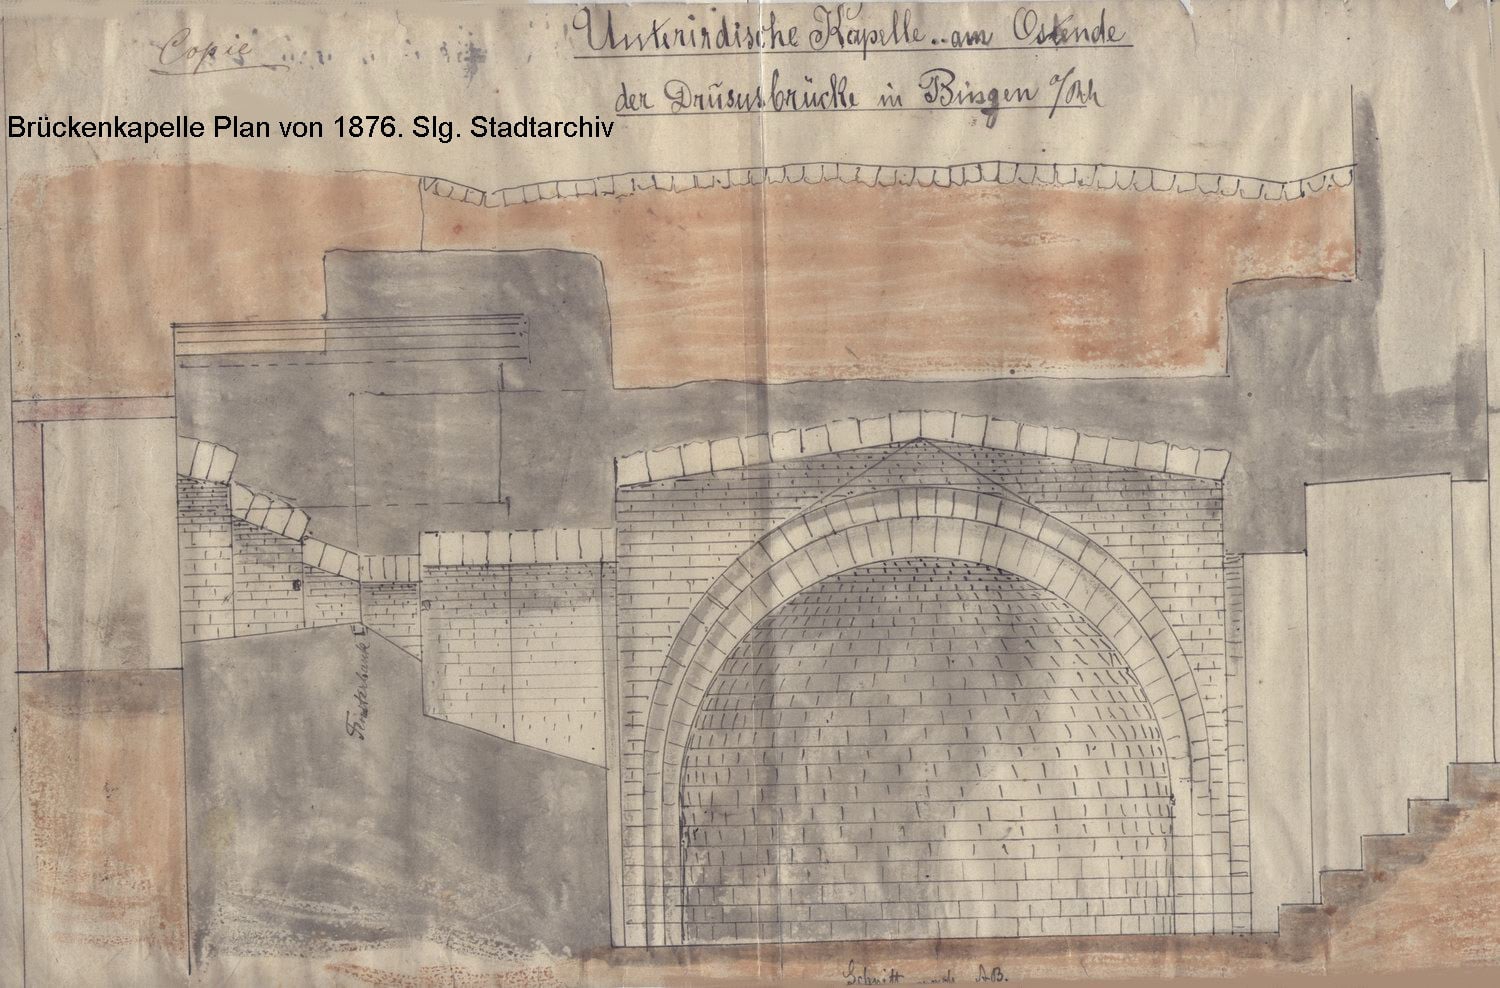 Copie
Unterirdische Kapelle am Ostende
der Drūsusbrücke in Bingen a/Rh
Brückenkapelle Plan von 1876. Slg. Stadtarchiv
Fensterbank
Schnitt nach A.B.